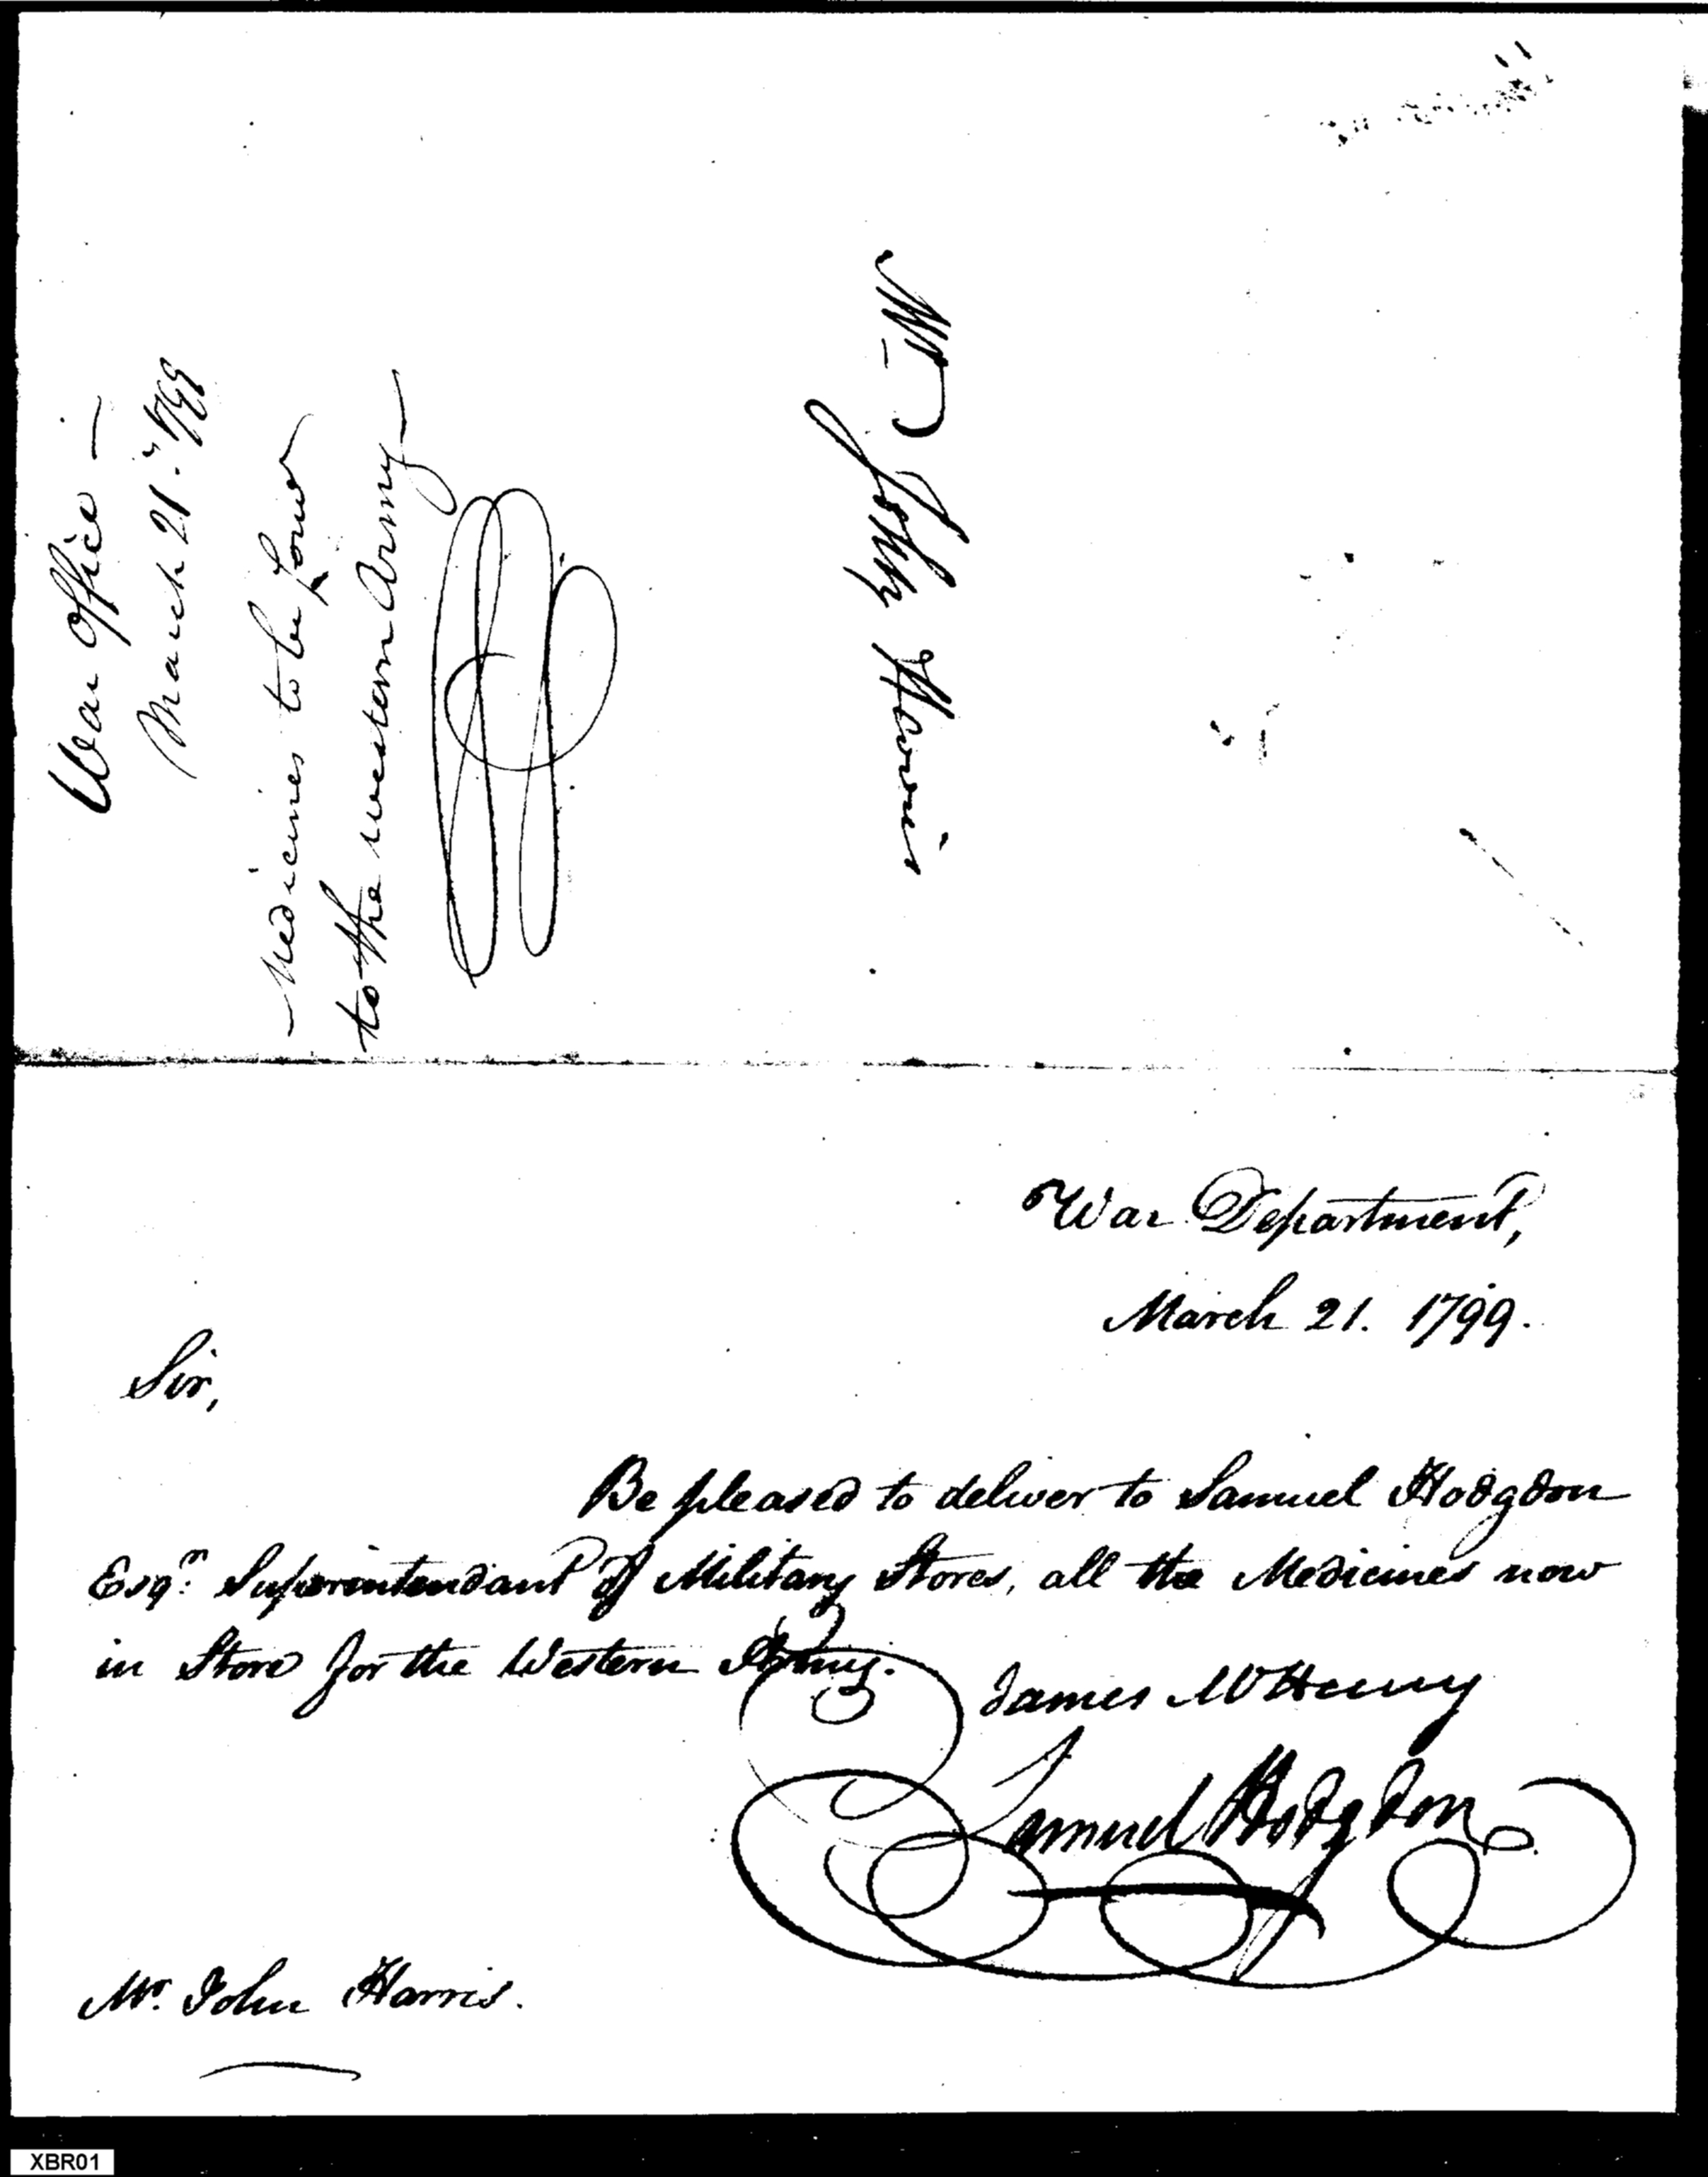 War Office —
March 21. 1799
Medicines to be
to the western Army
Mr. John Harris
War Department,
March 21. 1799.
Sir,
Be pleased to deliver to Samuel Hodgdon
Esqr. Superintendant of Military Stores, all the Medicines now
in Store for the Western Army.
James McHenry
Samuel Hodgdon
Mr. John Harris.
XBR01